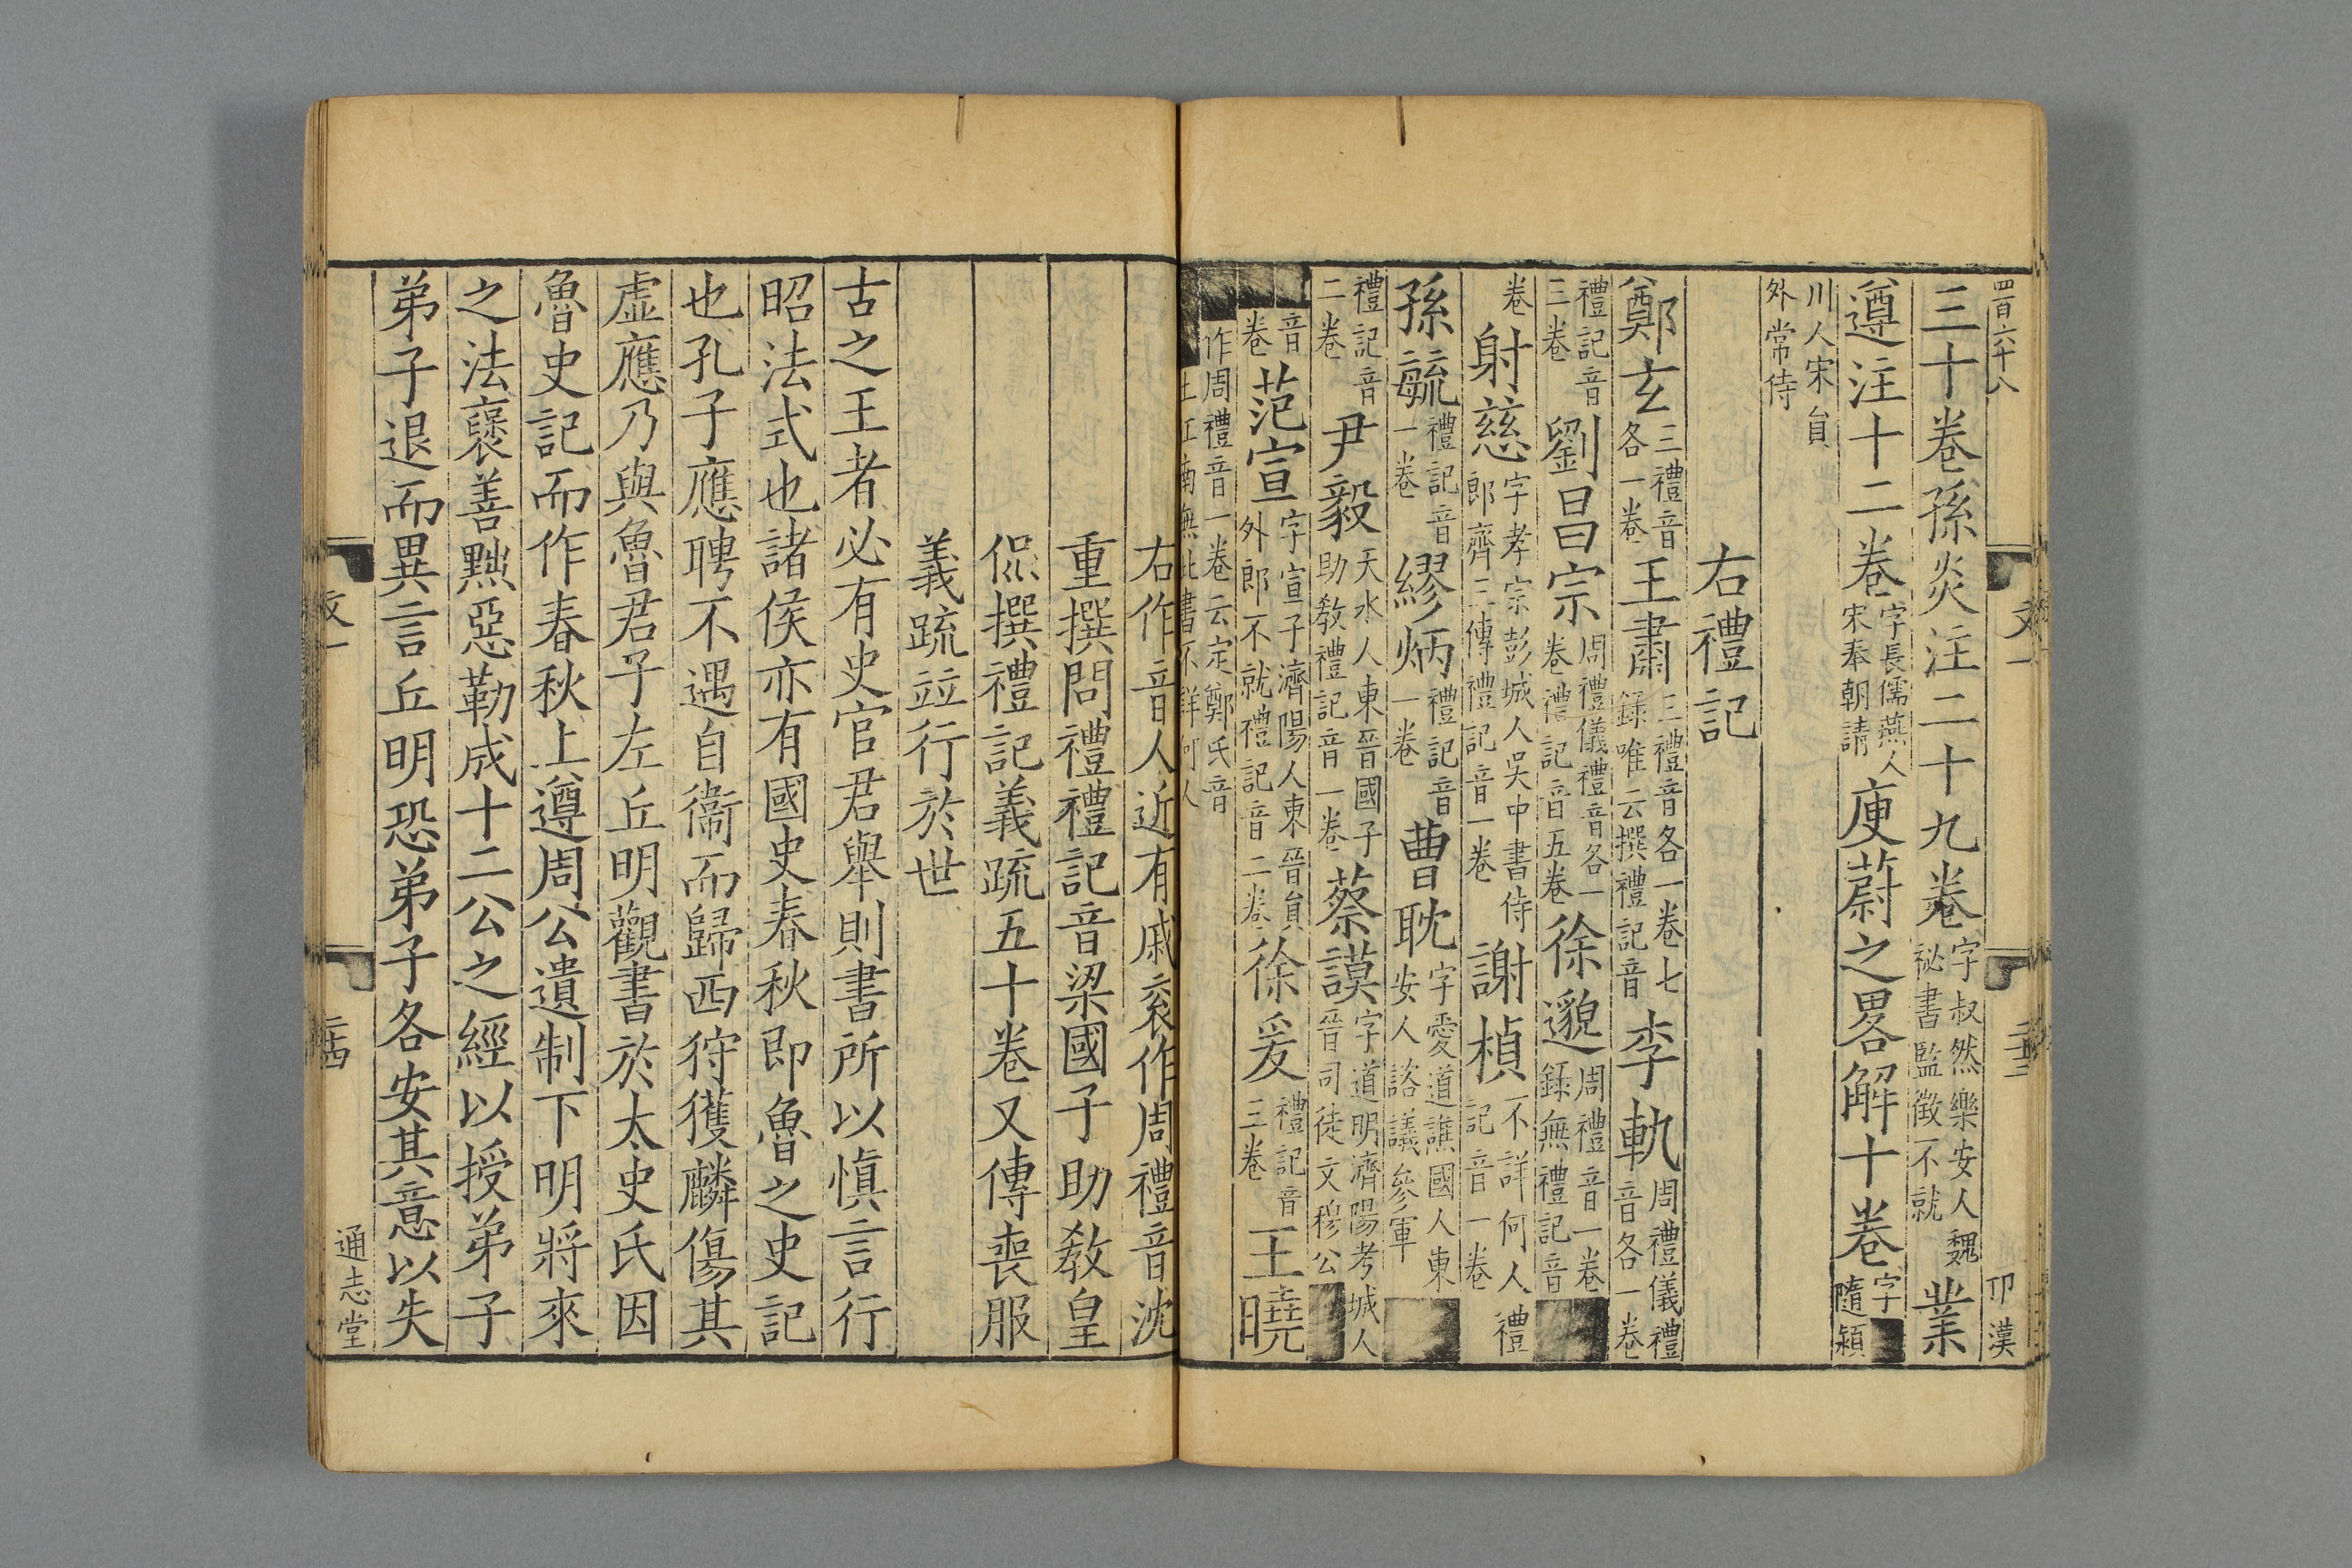 四百六十八 文一 卯漢
三十卷孫炎注二十九卷字叔然樂安人魏祕書監徵不就業
遵注十二卷字長儒燕人宋奉朝請庾蔚之畧解十卷字隨潁
川人宋員外常侍
右禮記
鄭玄三禮音各一卷王肅三禮音各一卷七録唯云撰禮記音李軌周禮儀禮音各一卷
禮記音三卷劉昌宗周禮儀禮音各一卷禮記音五卷徐邈周禮音一卷録無禮記音
卷射慈字孝宗彭城人吳中書侍郎齊王傅禮記音一卷謝楨不詳何人禮記音一卷
孫毓禮記音一卷繆炳禮記音一卷曹耽字愛道譙國人東安人諮議參軍
禮記音二卷尹毅天水人東晉國子助敎禮記音一卷蔡謨字道明濟陽考城人晉司徒文穆公
音卷范宣字宣子濟陽人東晉員外郎不就禮記音二卷徐爰禮記音三卷王曉
作周禮音一卷云定鄭氏音士江南無此書不詳何人
右作音人近有戚衮作周禮音沈
重撰問禮禮記音梁國子助敎皇
侃撰禮記義疏五十卷又傳喪服
義疏竝行於世
古之王者必有史官君舉則書所以愼言行
昭法式也諸侯亦有國史春秋即魯之史記
也孔子應聘不遇自衞而歸西狩獲麟傷其
虛應乃與魯君子左丘明觀書於太史氏因
魯史記而作春秋上遵周公遺制下明將來
之法襃善黜惡勒成十二公之經以授弟子
弟子退而異言丘明恐弟子各安其意以失
文一 二十四 通志堂